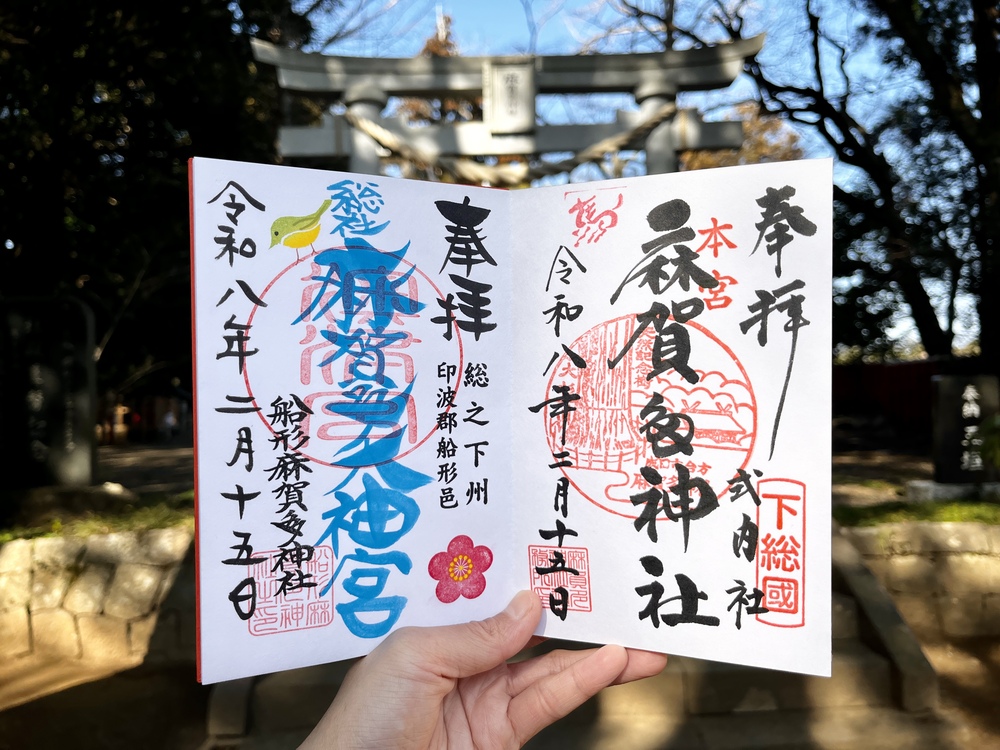 奉拝
下総國
式内社
本宮
麻賀多神社
令和八年二月十五日
奉拝
総之下州
印波郡船形邑
総社
麻賀多大神宮
船形麻賀多神社
令和八年二月十五日
奉納